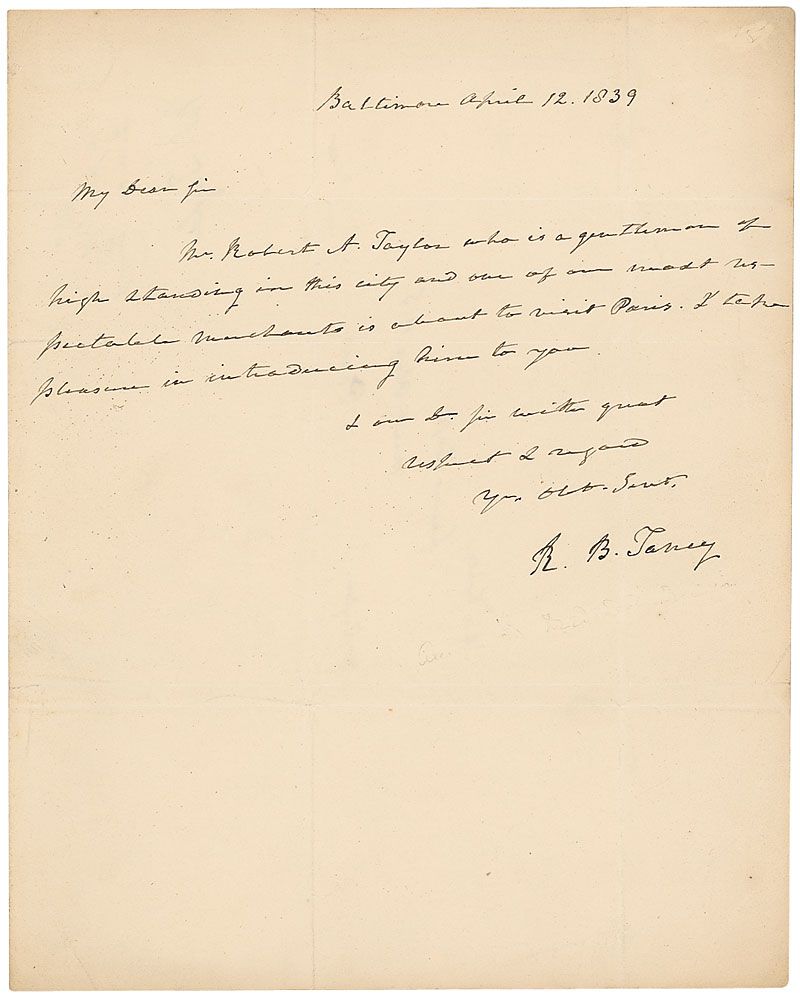 Baltimore April 12. 1839
My Dear Sir
Mr. Robert A. Taylor who is a gentleman of
high standing in this city and one of our most res-
pectable merchants is about to visit Paris. I take
pleasure in introducing him to you.
I am D. Sir with great
respect & regard
Yr. Obt. Servt.
R. B. Taney